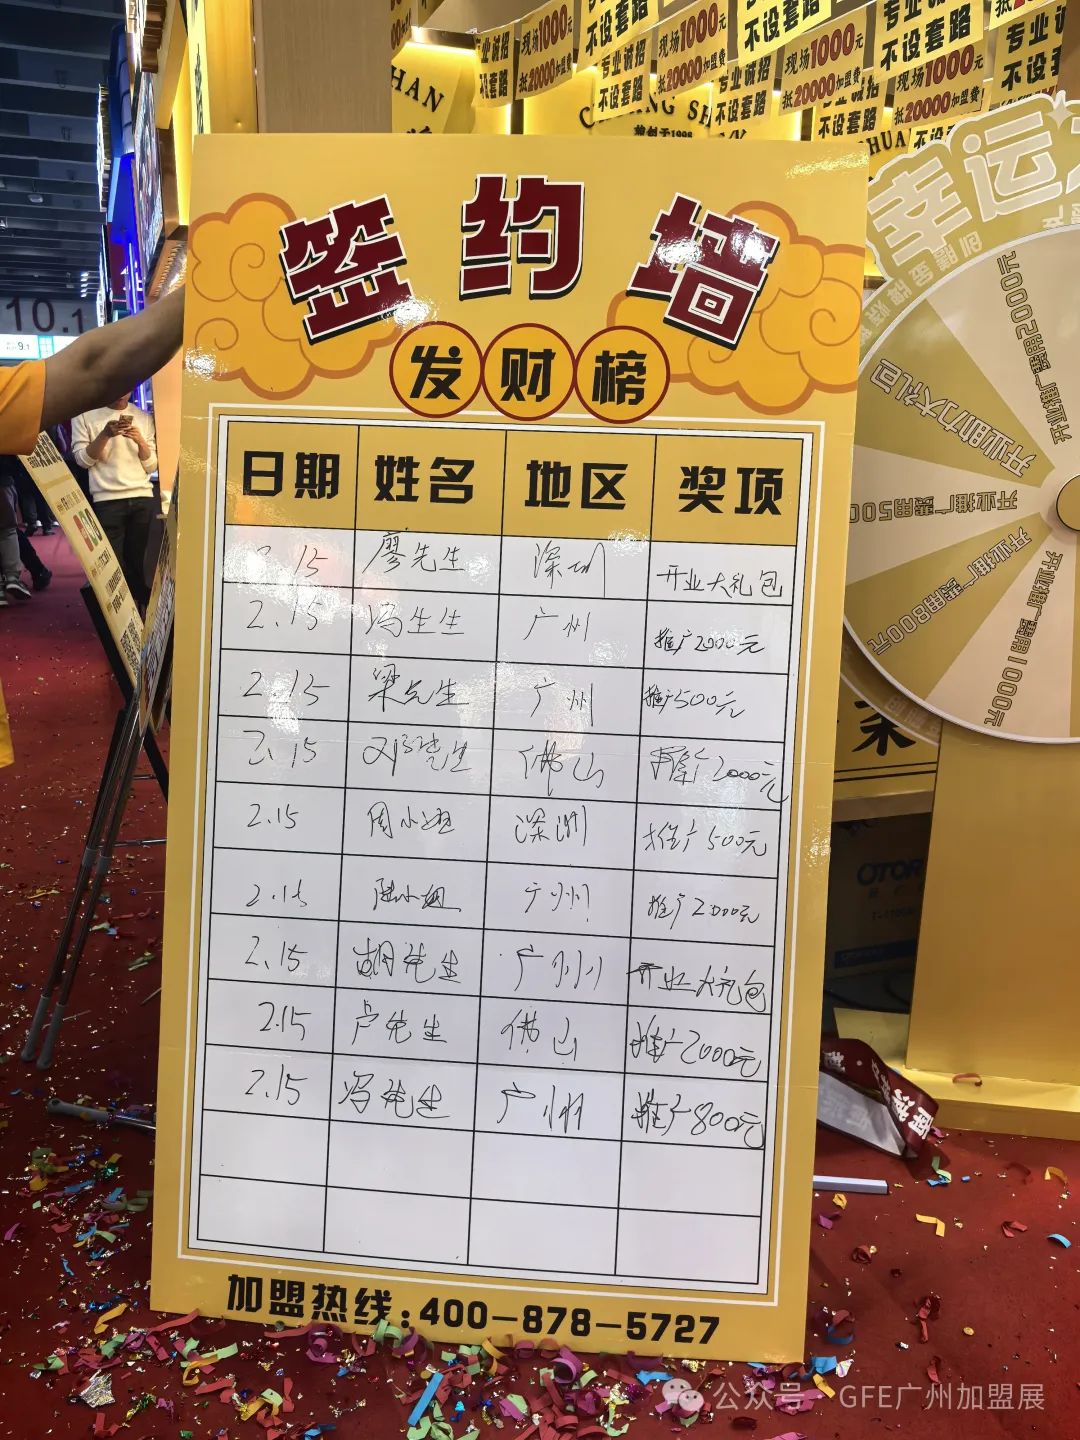 现场1000元
抵20000加盟费
专业诚招
不设套路
现场1000元
抵20000加盟费!
专业诚招
不设套路
HAN
SHUA
10.1
9.1
幸运
签约墙
发财榜
日期 姓名 地区 奖项
2.15 廖先生 深圳 开业大礼包
2.15 冯先生 广州 推广2000元
2.15 梁先生 广州 推广500元
2.15 邓先生 佛山 推广2000元
2.15 周小姐 深圳 推广500元
2.15 陆小姐 广州 推广2000元
2.15 胡先生 广州 开业大礼包
2.15 卢先生 佛山 推广2000元
2.15 冯先生 广州 推广800元
加盟热线:400-878-5727
开业推广费用2000元
开业助力大礼包
开业推广费用500
开业推广费用800元
开业推广费用1000元
OTOR
公众号 · GFE广州加盟展